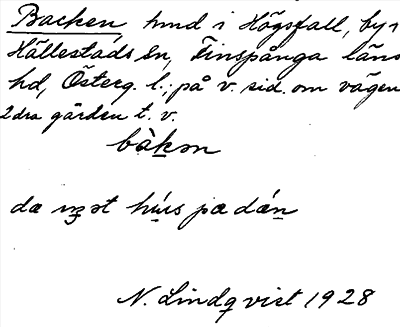 Backen hmd i Högsfall, by i
Hällestads sn, Finspånga läns
hd, Österg. l.; på v. sid. om vägen
2dra gården t. v.
bàkən
dæ ət hus pæ dán
N. Lindqvist 1928